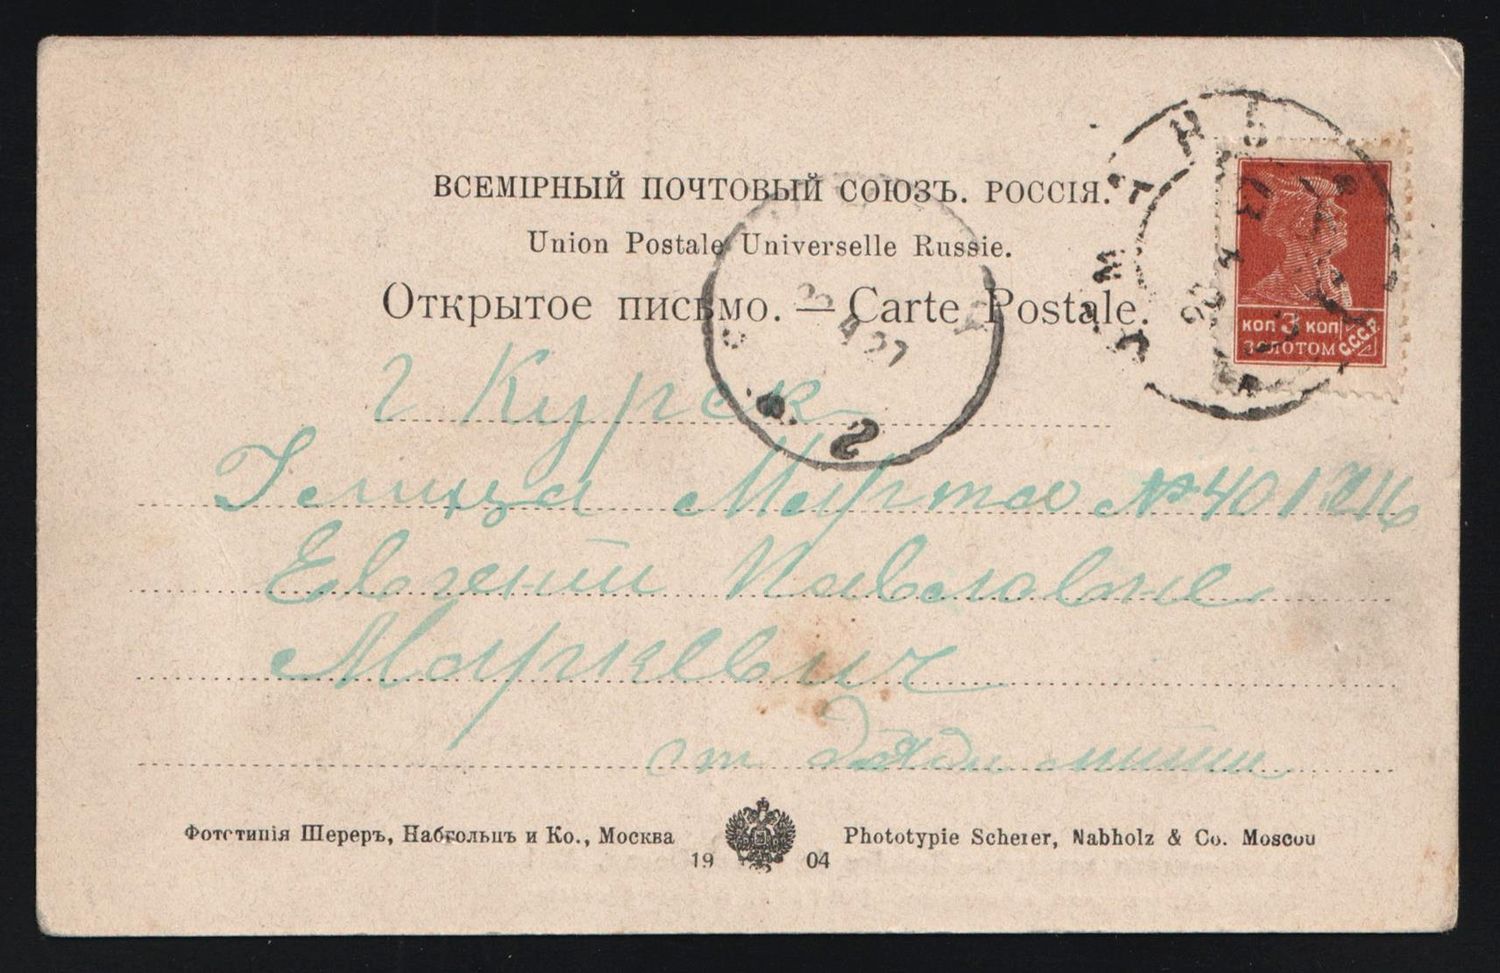 ВСЕМІРНЫЙ ПОЧТОВЫЙ СОЮЗЪ. РОССІЯ.
Union Postale Universelle Russie.
Открытое письмо. — Carte Postale.
КОП 3 КОП
ЗОЛОТОМ С.С.С.Р.
4 27
г Курск
Улица Марта № 40
Евгении Павловне
Маркевич
от дяди Мити
Фототипія Шереръ, Набгольцъ и Ко., Москва
Phototypie Scherer, Nabholz & Co. Moscou
19 04